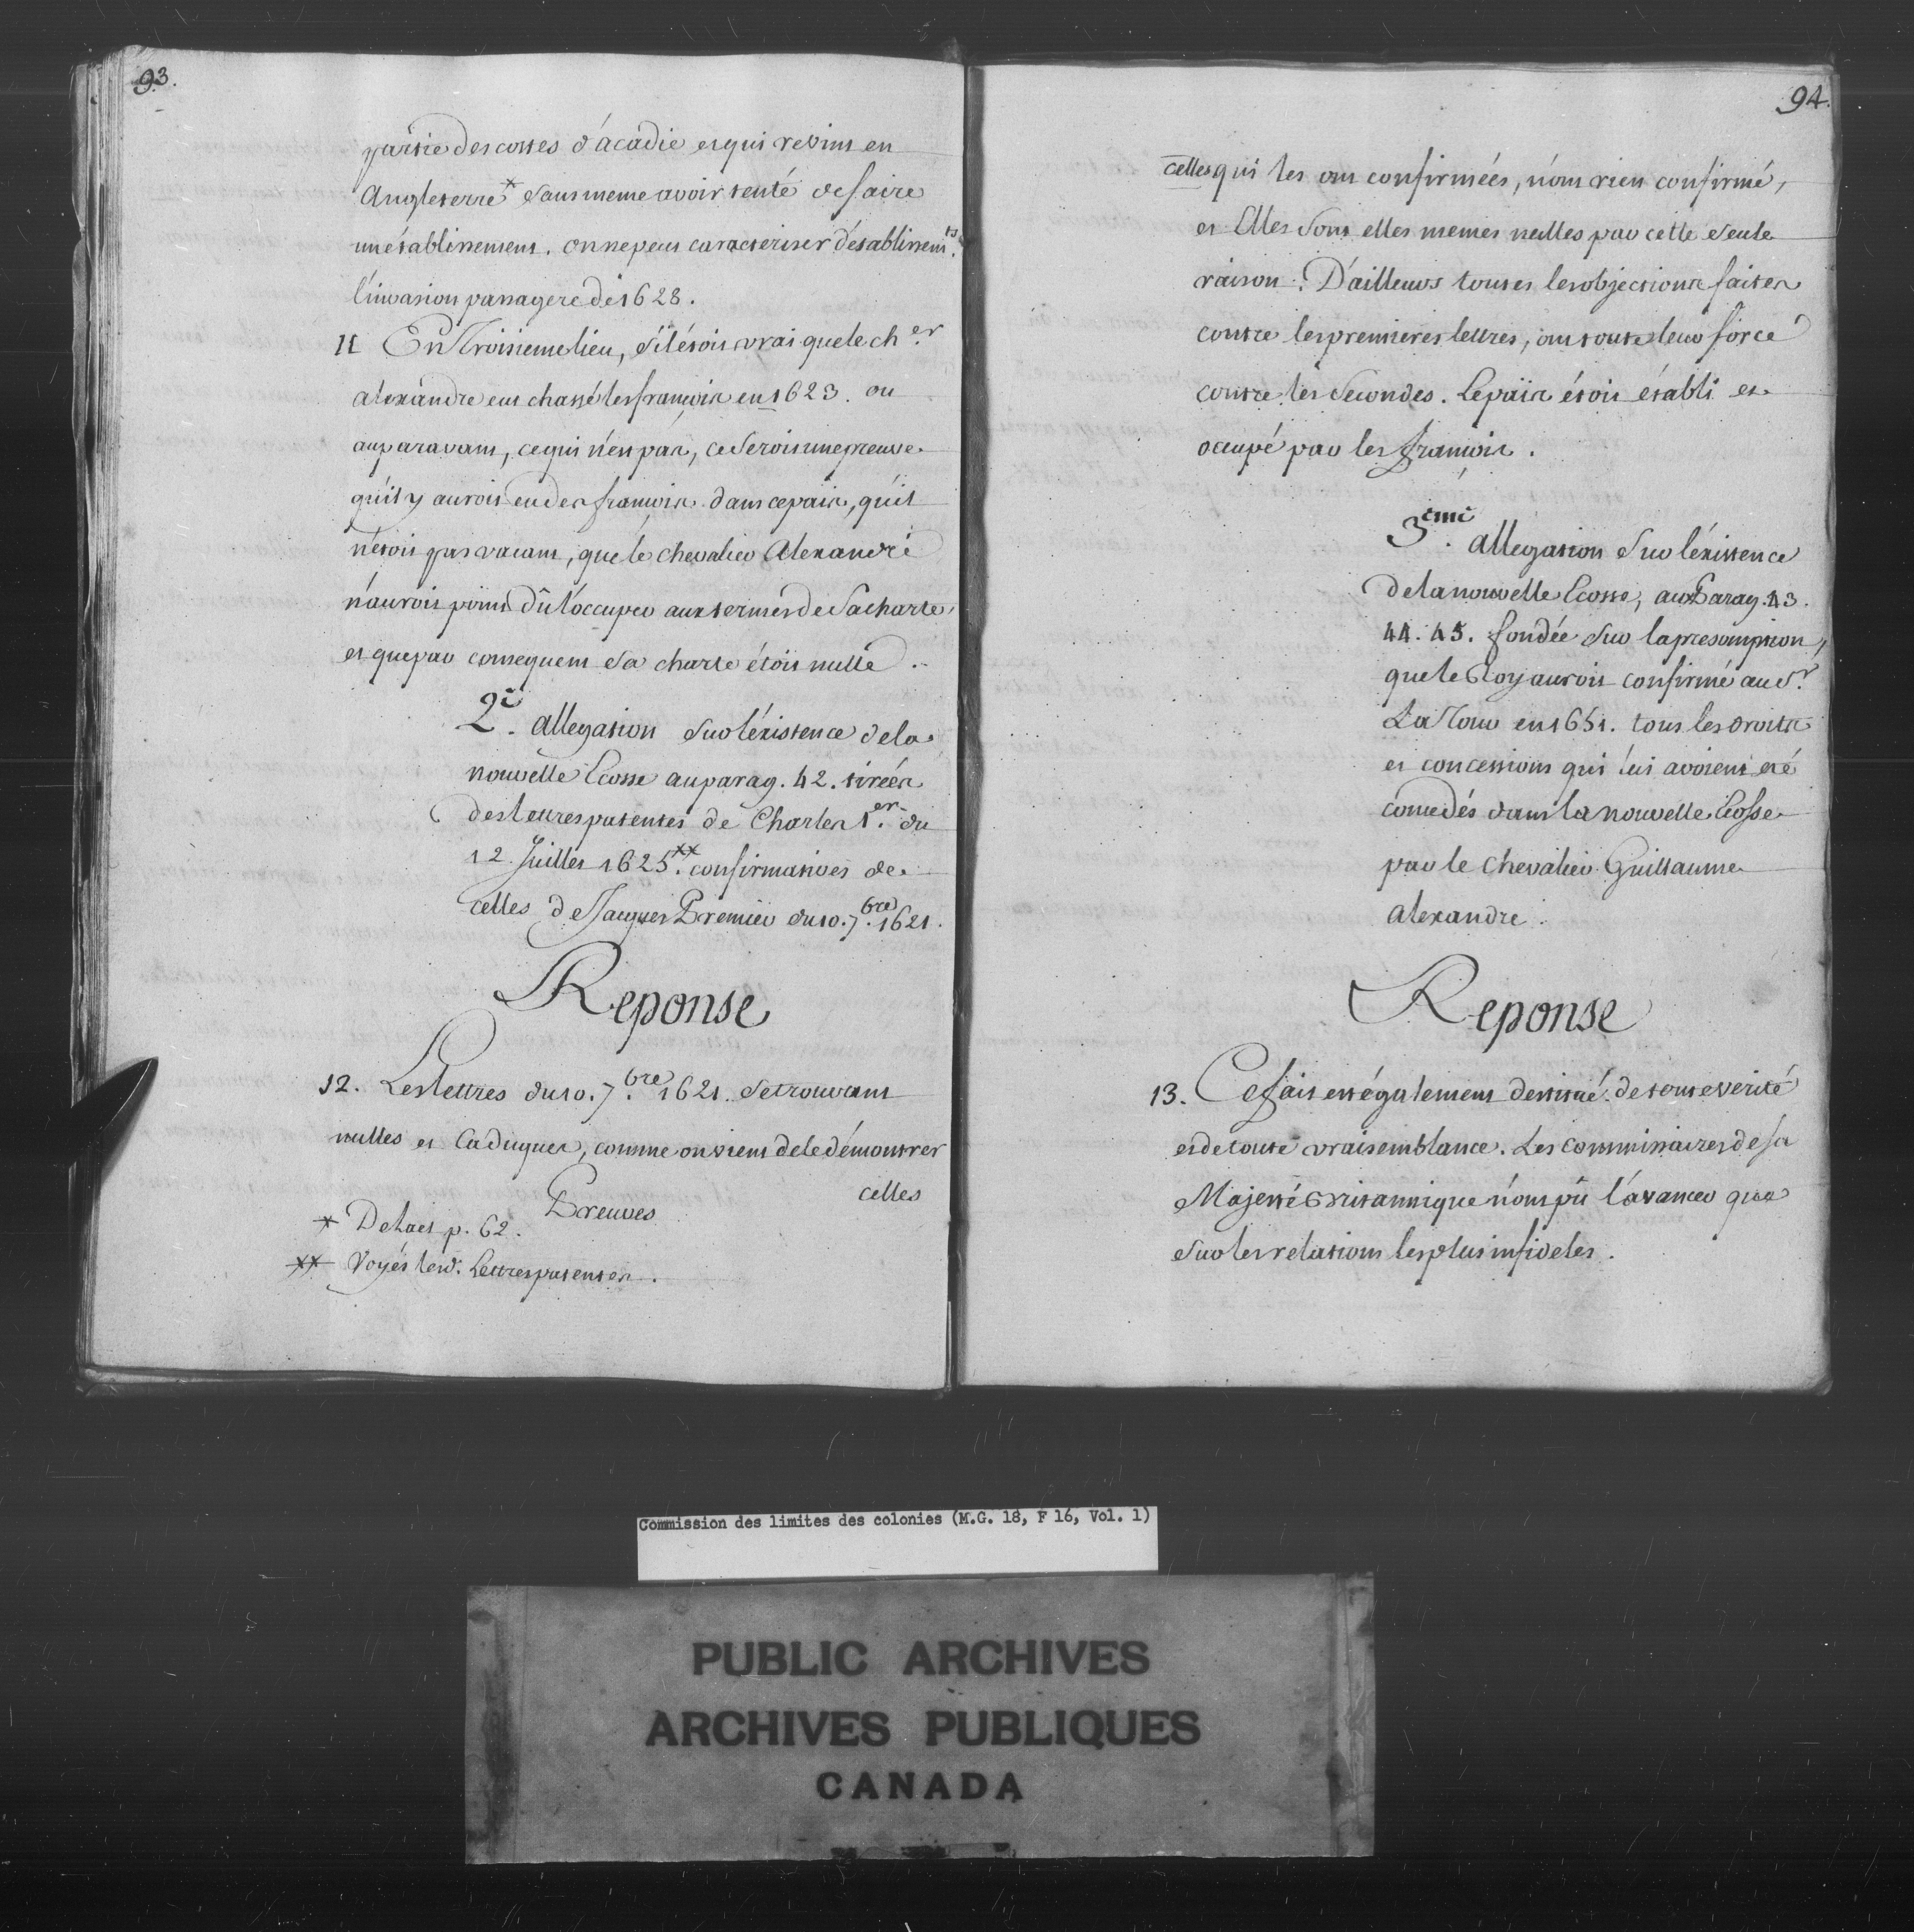 93.
partie des costes d'acadie et qui revint en
Angleterre * sans meme avoir tenté de faire
un établissement. on ne peut caracteriser d'établissem.ts
l'invasion passagere de 1628.
11 En Troisieme lieu, s'il étoit vrai que le ch.er
alexandre eut chassé les francois en 1623. ou
auparavant, ce qui n'est pas, ce seroit une preuve
qu'il y auroit eu des francois dans ce païs, qu'il
n'étoit pas vacant, que le chevalier Alexandre
n'auroit point dû l'occuper aux termes de sa charte,
et que par consequent sa charte étoit nulle.
2.e allegation sur l'éxistence de la
nouvelle Ecosse au parag. 42. tirées
des lettres patentes de Charles 1.er du
12 Juillet 1625 **. confirmatives de
celles de Jacques Premier du 10. 7.bre 1621.
Reponse
12. Les lettres du 10. 7.bre 1621. se trouvant
nulles et Caduques, comme on vient de le démontrer
celles
Preuves
* De Laet p. 62.
** Voyés lesd. Lettres patentes.
94.
celles qui les ont confirmées, n'ont rien confirmé,
et Elles sont elles memes nulles par cette seule
raison. D'ailleurs toutes les objections faites
contre les premieres lettres, ont toute leur force
contre les secondes. Le païs étoit établi et
occupé par les francois.
3.eme allegation sur l'éxistence
de la nouvelle Ecosse, aux Parag. 43.
44. 45. fondée sur la presomption,
que le Roy auroit confirmé au S.r
La Tour en 1651. tous les droits
et concessions qui lui avoient eté
concedés dans la nouvelle Ecosse
par le chevalier Guillaume
Alexandre.
Reponse
13. Ce fait est également destitué de toute verité
et de toute vraisemblance. Les commissaires de sa
Majesté Britannique n'ont pû l'avancer que
sur les relations les plus infideles.
Commission des limites des colonies (M.G. 18, F 16, Vol. 1)
PUBLIC ARCHIVES
ARCHIVES PUBLIQUES
CANADA